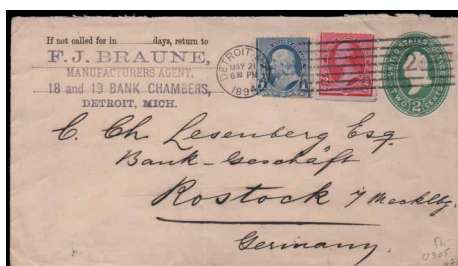 If not called for in ............ days, return to
F. J. BRAUNE,
MANUFACTURERS AGENT,
18 and 19 BANK CHAMBERS,
DETROIT, MICH.
DETROIT,
MAY 21
6 30 PM
1894
2
UNITED STATES
TWO 2 CENTS
C. Ch. Lesenberg Esq
Bank-Geschäft
Rostock i/ Mecklbg.
Germany.
U305